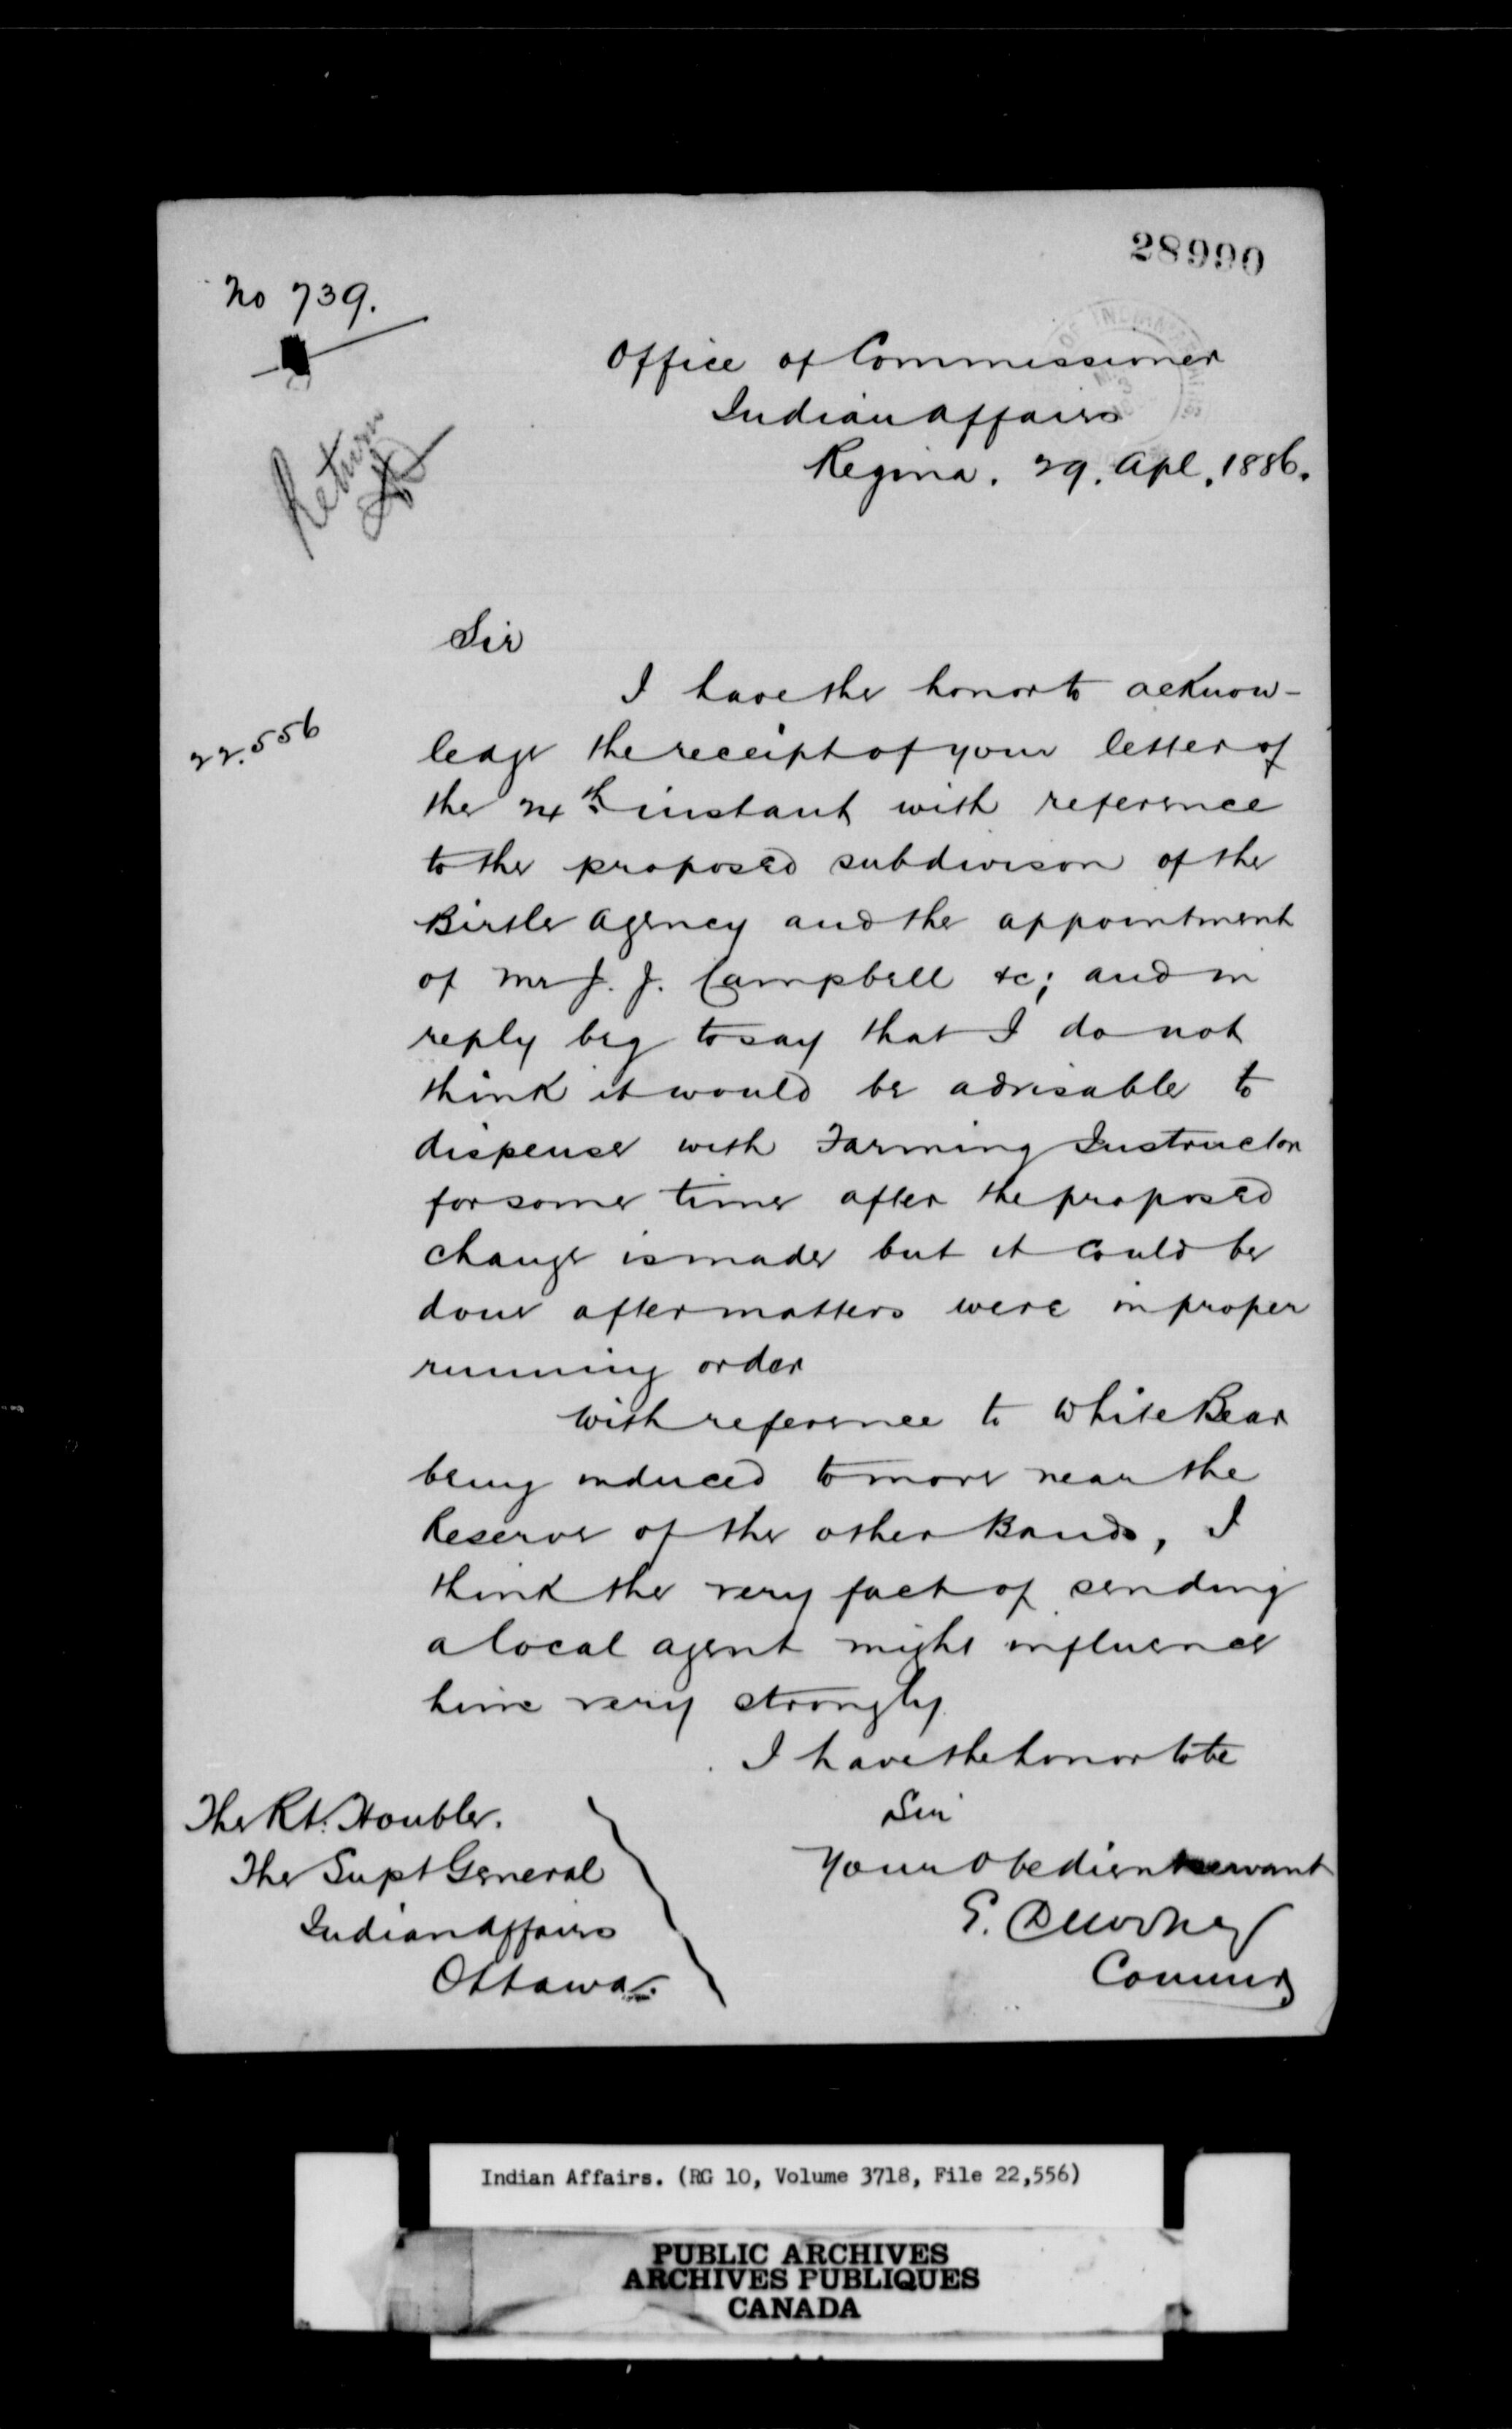 28990
No 739.
Office of Commissioner
Indian Affairs
Regina. 29. Apl. 1886.
Return
Sir
I have the honor to acknow-
22.556
ledge the receipt of your letter of
the 24th instant with reference
to the proposed subdivison of the
Birtle Agency and the appointment
of Mr J. J. Campbell &c; and in
reply beg to say that I do not
think it would be advisable to
dispense with Farming Instructor
for some time after the proposed
change is made but it could be
done after matters were in proper
running order
With reference to White Bear
being induced to move near the
Reserve of the other Bands, I
think the very fact of sending
a local agent might influence
him very strongly.
I have the honor to be
Sir
Your Obedient servant
E. Dewdney
Commr
The Rt. Honble.
The Supt General
Indian Affairs
Ottawa.
Indian Affairs. (RG 10, Volume 3718, File 22,556)
PUBLIC ARCHIVES
ARCHIVES PUBLIQUES
CANADA